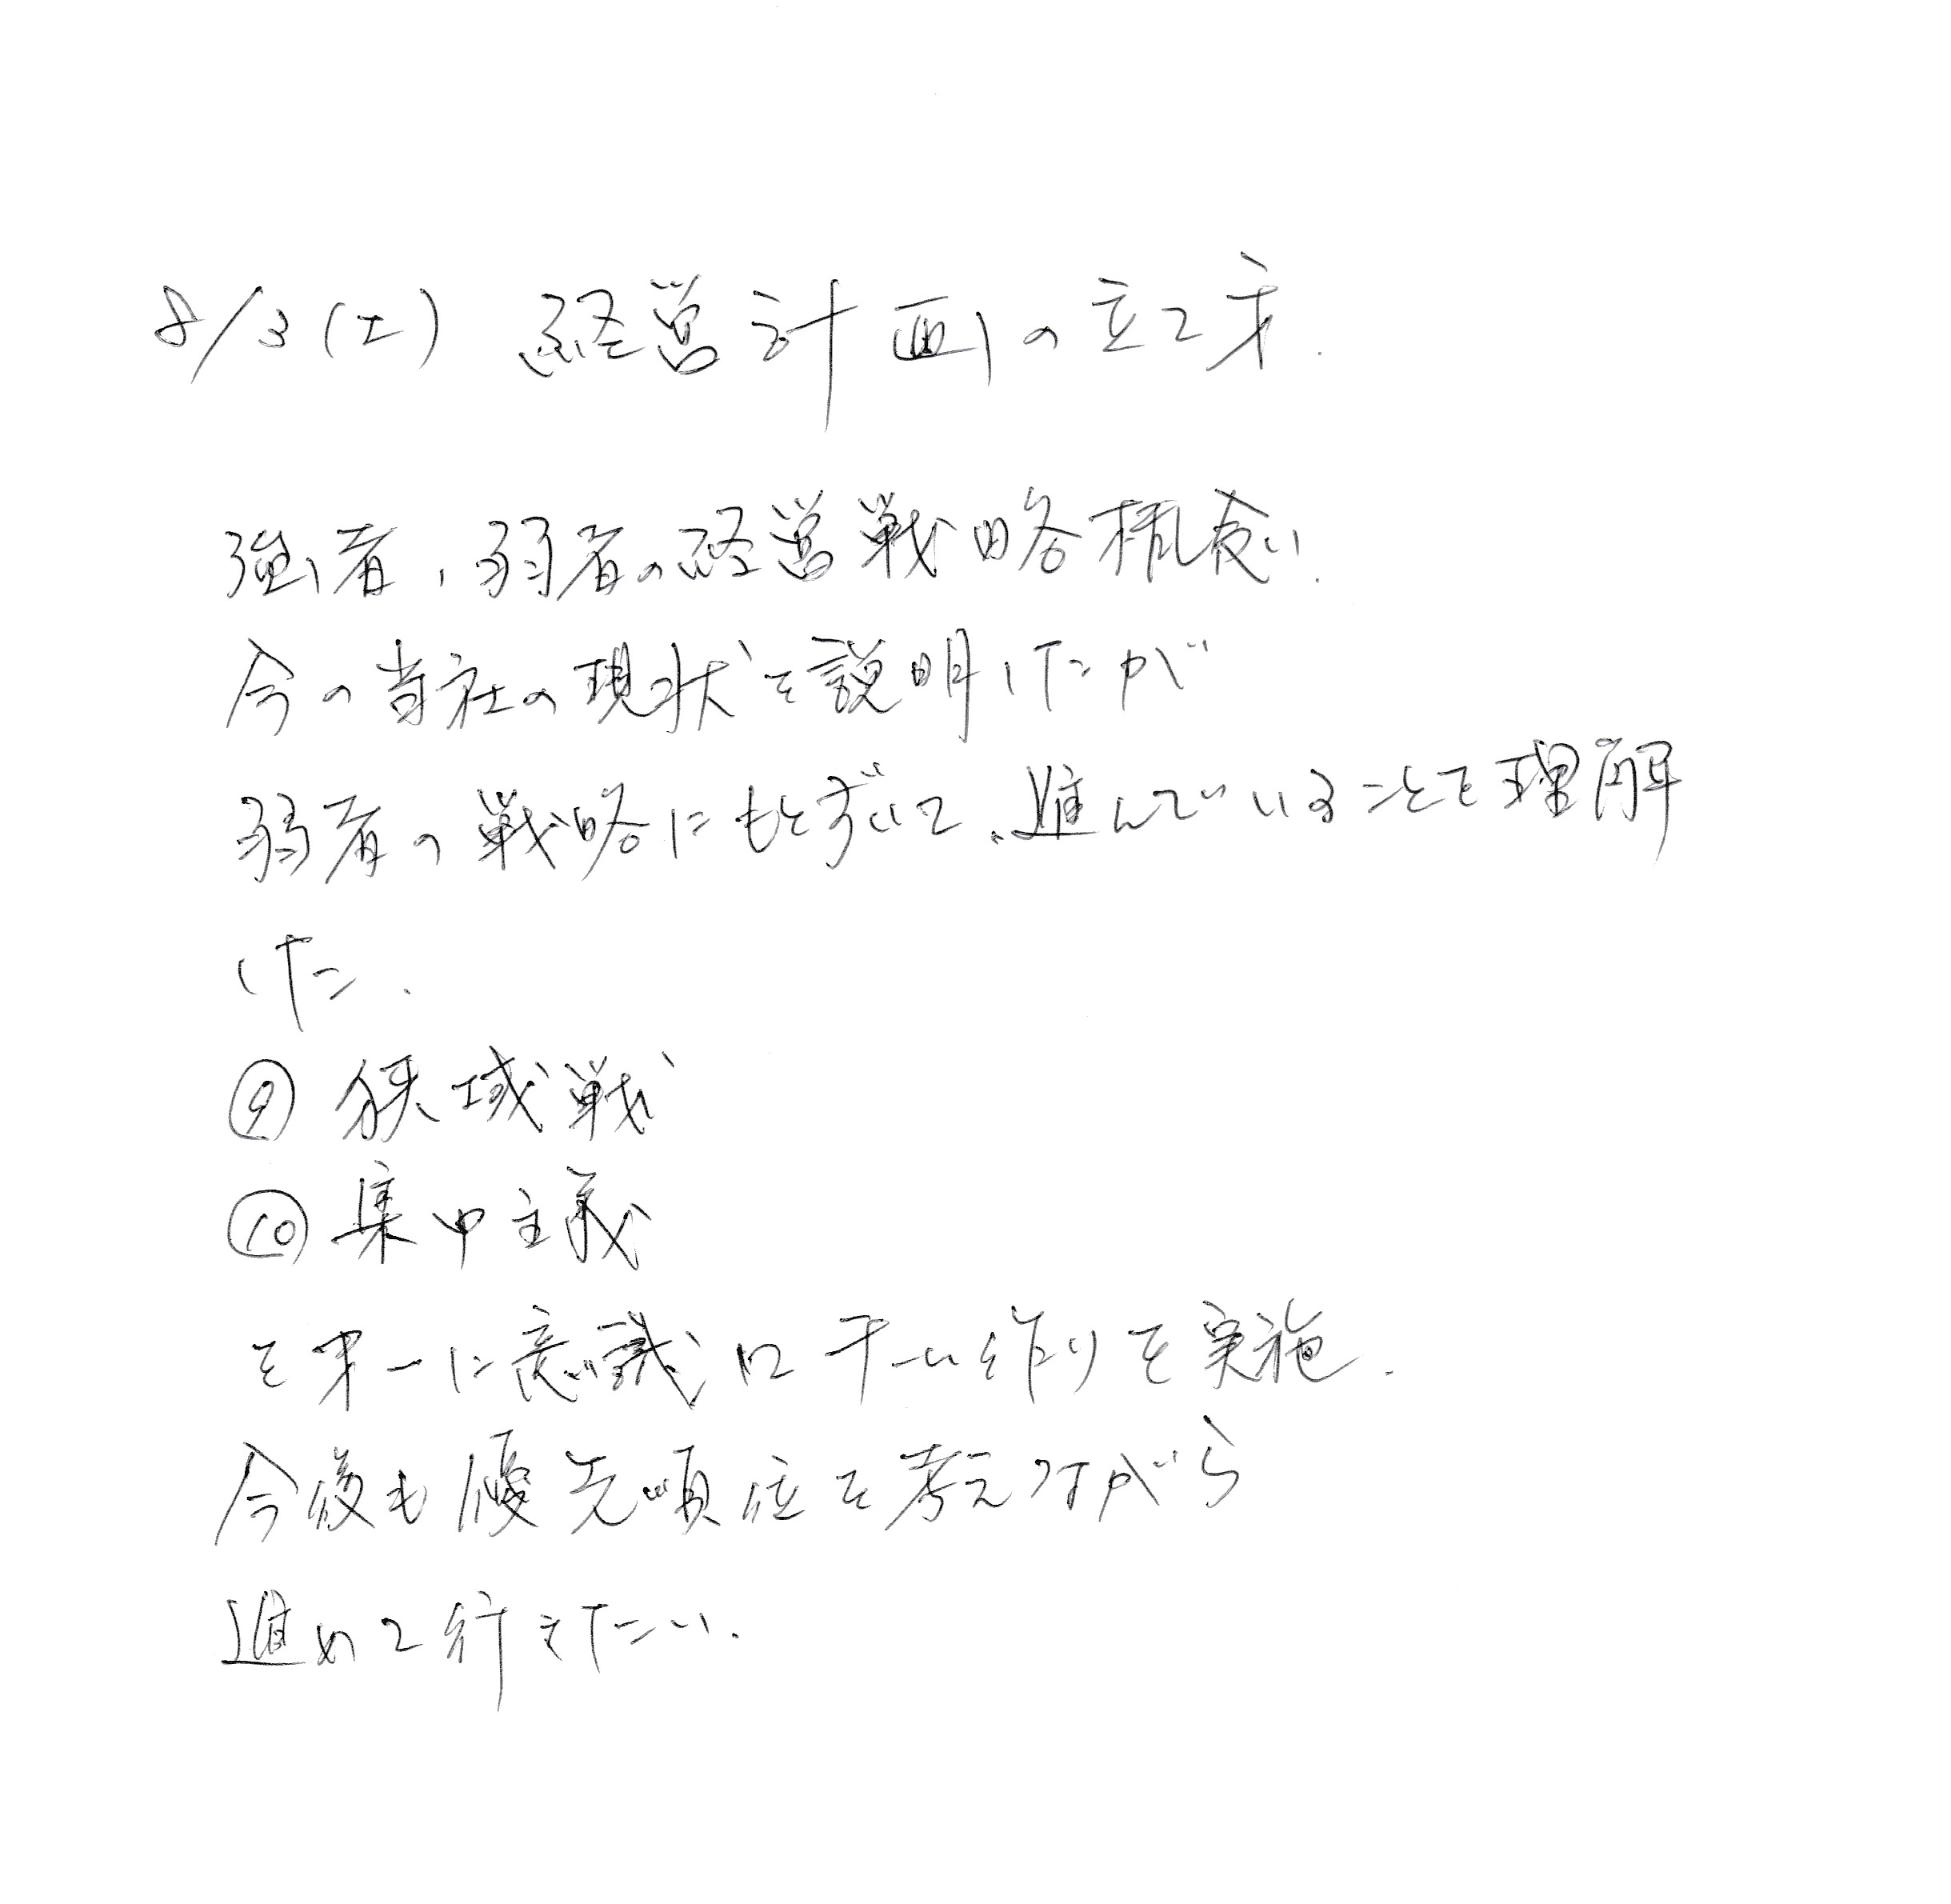 8/3(土) 経営計画の立て方.
強者,弱者の経営戦略概念.
今の当社の現状を説明したが
弱者の戦略にもとずいて、進んでいることを理解
した.
⑨ 狭域戦
⑩ 集中主義
を第一に意識してチーム作りを実施.
今後も優先順位を考えながら
進めて行きたい.